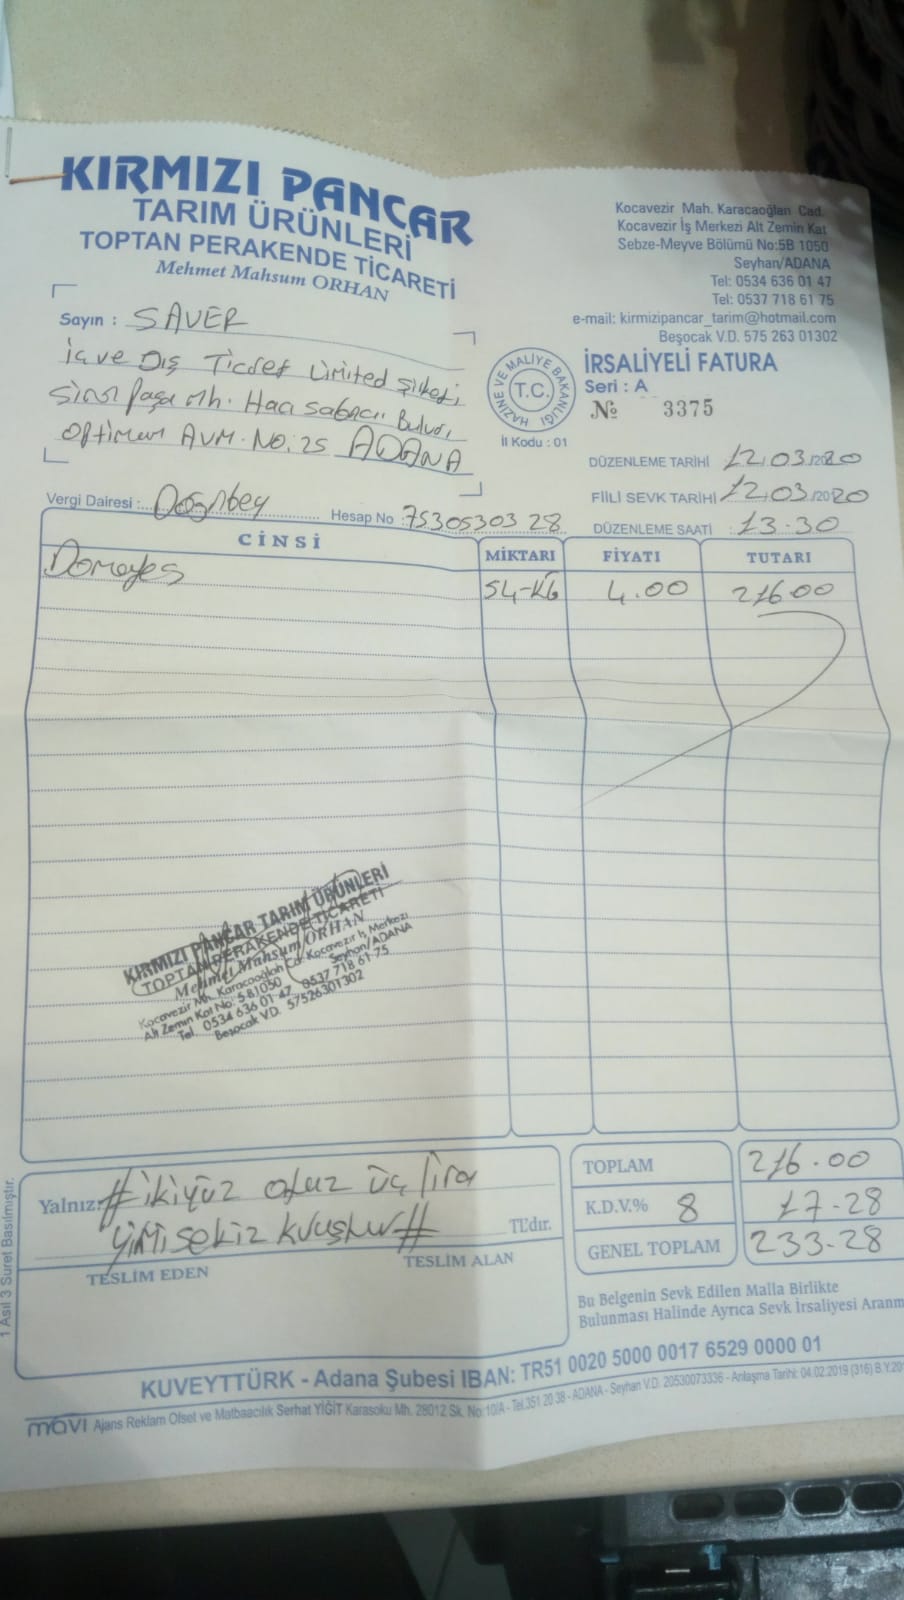 KIRMIZI PANCAR
TARIM ÜRÜNLERİ
TOPTAN PERAKENDE TİCARETİ
Mehmet Mahsum ORHAN
Kocavezir Mah. Karacaoğlan Cad.
Kocavezir İş Merkezi Alt Zemin Kat
Sebze-Meyve Bölümü No:5B 1050
Seyhan/ADANA
Tel: 0534 636 01 47
Tel: 0537 718 61 75
e-mail: kirmizipancar_tarim@hotmail.com
Beşocak V.D. 575 263 01302
Sayın : SAVER
İç ve Dış Ticaret Limited Şirketi
Sinanpaşa Mh. Hacı Sabancı Bulvarı
Optimum AVM. No: 25 ADANA
T.C. HAZİNE VE MALİYE BAKANLIĞI
İl Kodu : 01
İRSALİYELİ FATURA
Seri : A
№ 3375
DÜZENLEME TARİHİ 12.03/2020
FİİLİ SEVK TARİHİ 12.03/2020
DÜZENLEME SAATİ : 13.30
Vergi Dairesi : Hesap No : 7530530328
CİNSİ MİKTARI FİYATI TUTARI
Domates 54-KG 4.00 216.00
KIRMIZI PANCAR TARIM ÜRÜNLERİ
TOPTAN PERAKENDE TİCARETİ
Mehmet Mahsum ORHAN
Kocavezir Mh. Karacaoğlan Cd. Kocavezir İş Merkezi
Alt Zemin Kat No: 5-B1050 Seyhan/ADANA
Tel. 0534 636 01 47 0537 718 61 75
Beşocak V.D. 57526301302
Yalnız: #ikiyüz otuz üç lira
yirmisekiz kuruştur# TL'dır.
TESLİM EDEN TESLİM ALAN
TOPLAM 216.00
K.D.V.% 8 17-28
GENEL TOPLAM 233-28
Bu Belgenin Sevk Edilen Malla Birlikte
Bulunması Halinde Ayrıca Sevk İrsaliyesi Aranm
1 Asıl 3 Suret Basılmıştır.
KUVEYTTÜRK - Adana Şubesi IBAN: TR51 0020 5000 0017 6529 0000 01
mavi Ajans Reklam Ofset ve Matbaacılık Serhat YİĞİT Karasoku Mh. 28012 Sk. No:10/A - Tel.351 20 38 - ADANA - Seyhan V.D. 20530073336 - Anlaşma Tarihi: 04.02.2019 (316) B.Y.20